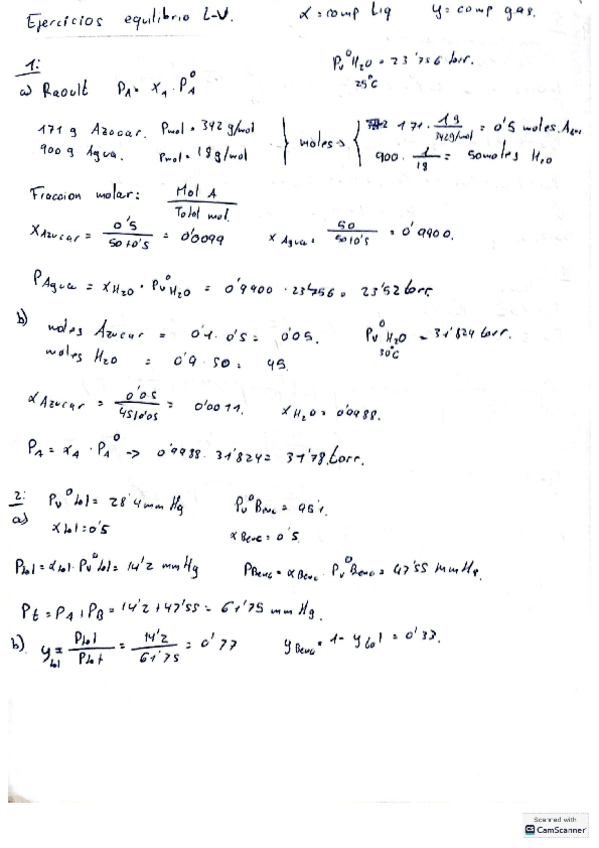 Ejercicios equilibrio L-V. x = comp Liq y = comp gas.
1:
a) Raoult P_A = x_A · P_A^0 P_v^0 H2O = 23'756 torr.
25°C
171 g Azucar. Pmol = 342 g/mol
900 g Agua. Pmol = 18 g/mol
moles → 171 · 1g/342g/mol = 0'5 moles.
900 · 1/18 = 50moles H2O
Fraccion molar: Mol A / Total mol.
x Azucar = 0'5 / 50+0'5 = 0'0099 x Agua = 50 / 50+0'5 = 0'9900.
P Agua = x H2O · P_v^0 H2O = 0'9900 · 23'756 = 23'52 torr.
b) moles Azucar = 0'1 · 0'5 = 0'05. P_v^0 H2O = 31'824 torr.
30°C
moles H2O = 0'9 · 50 = 45.
x Azucar = 0'05 / 45+0'05 = 0'0011. x H2O = 0'9988.
P_A = x_A · P_A^0 → 0'9988 · 31'824 = 31'78 torr.
2:
a) P_v^0 tol = 28'4 mm Hg P_v^0 Benc = 95'1.
x tol = 0'5 x Benc = 0'5.
P tol = x tol · P_v^0 tol = 14'2 mm Hg P Benc = x Benc · P_v^0 Benc = 47'55 mm Hg.
Pt = P_A + P_B = 14'2 + 47'55 = 61'75 mm Hg.
b) y tol = P tol / P tot = 14'2 / 61'75 = 0'77 y Benc = 1 - y tol = 0'33.
Scanned with
CamScanner